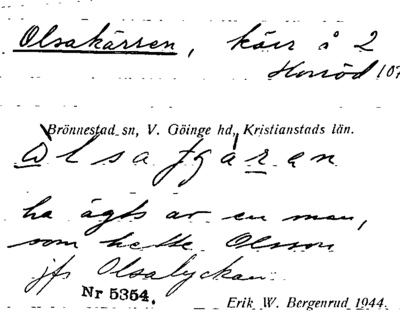 Olsakärren, kärr å 2
Horröd 107
Brönnestad sn, V. Göinge hd, Kristianstads län.
ha ägts av en man,
som hette Olsson
jfr Olsalyckan
Nr 5354.
Erik W. Bergenrud 1944.